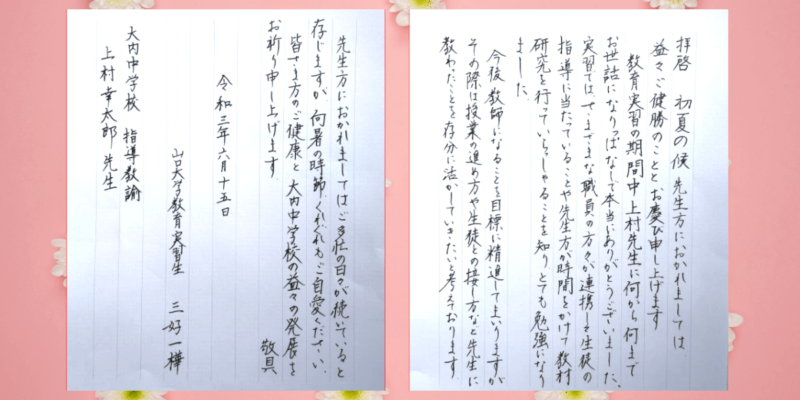 拝啓 初夏の候 先生方におかれましては
益々ご健勝のこととお慶び申し上げます
教育実習の期間中 上村先生に何から何まで
お世話になりっぱなしで本当にありがとうございました。
実習では、さまざまな職員の方々が連携し生徒の
指導に当たっていることや先生方が時間をかけて教材
研究を行っていらっしゃることを知り とても勉強になり
ました。
今後 教師になることを目標に精進してまいりますが
その際は授業の進め方や生徒との接し方など先生に
教わったことを存分に活かしていきたいと考えております。
先生方におかれましてはご多忙の日々が続いていると
存じますが、向暑の時節、くれぐれもご自愛ください。
皆さま方のご健康と 大内中学校の益々の発展を
お祈り申し上げます
敬具
令和三年六月十五日
山口大学教育実習生 三好一樺
大内中学校 指導教諭
上村幸太郎 先生